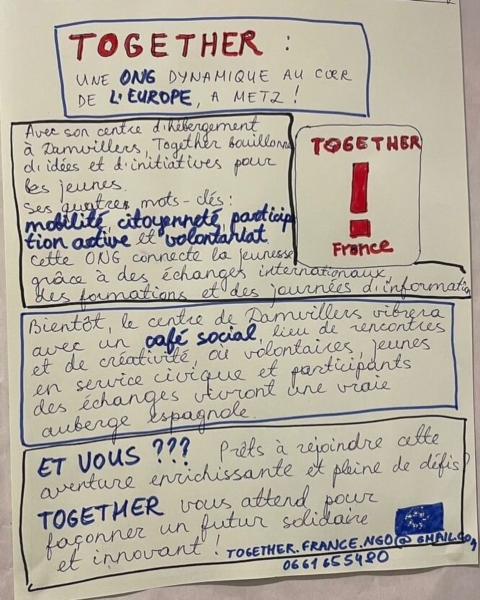 TOGETHER :
UNE ONG DYNAMIQUE AU CŒR
DE L'EUROPE, A METZ !
Avec son centre d'hébergement
à Damvillers, Together bouillonne
d'idées et d'initiatives pour
les jeunes.
Ses quatres mots-clés :
mobilité, citoyenneté, particip
tion active et volontariat.
cette ONG connecte la jeunesse
grâce à des échanges internationaux,
des formations et des journées d'information
TOGETHER
!
France
Bientôt, le centre de Damvillers vibrera
avec un café social, lieu de rencontres
et de créativité, où volontaires, jeunes
en service civique et participants
des échanges vivront une vraie
auberge espagnole.
ET VOUS ??? Prêts à rejoindre cette
aventure enrichissante et pleine de défis?
TOGETHER vous attend pour
façonner un futur solidaire
et innovant !
TOGETHER.FRANCE.NGO@GMAIL.COM
0661655480